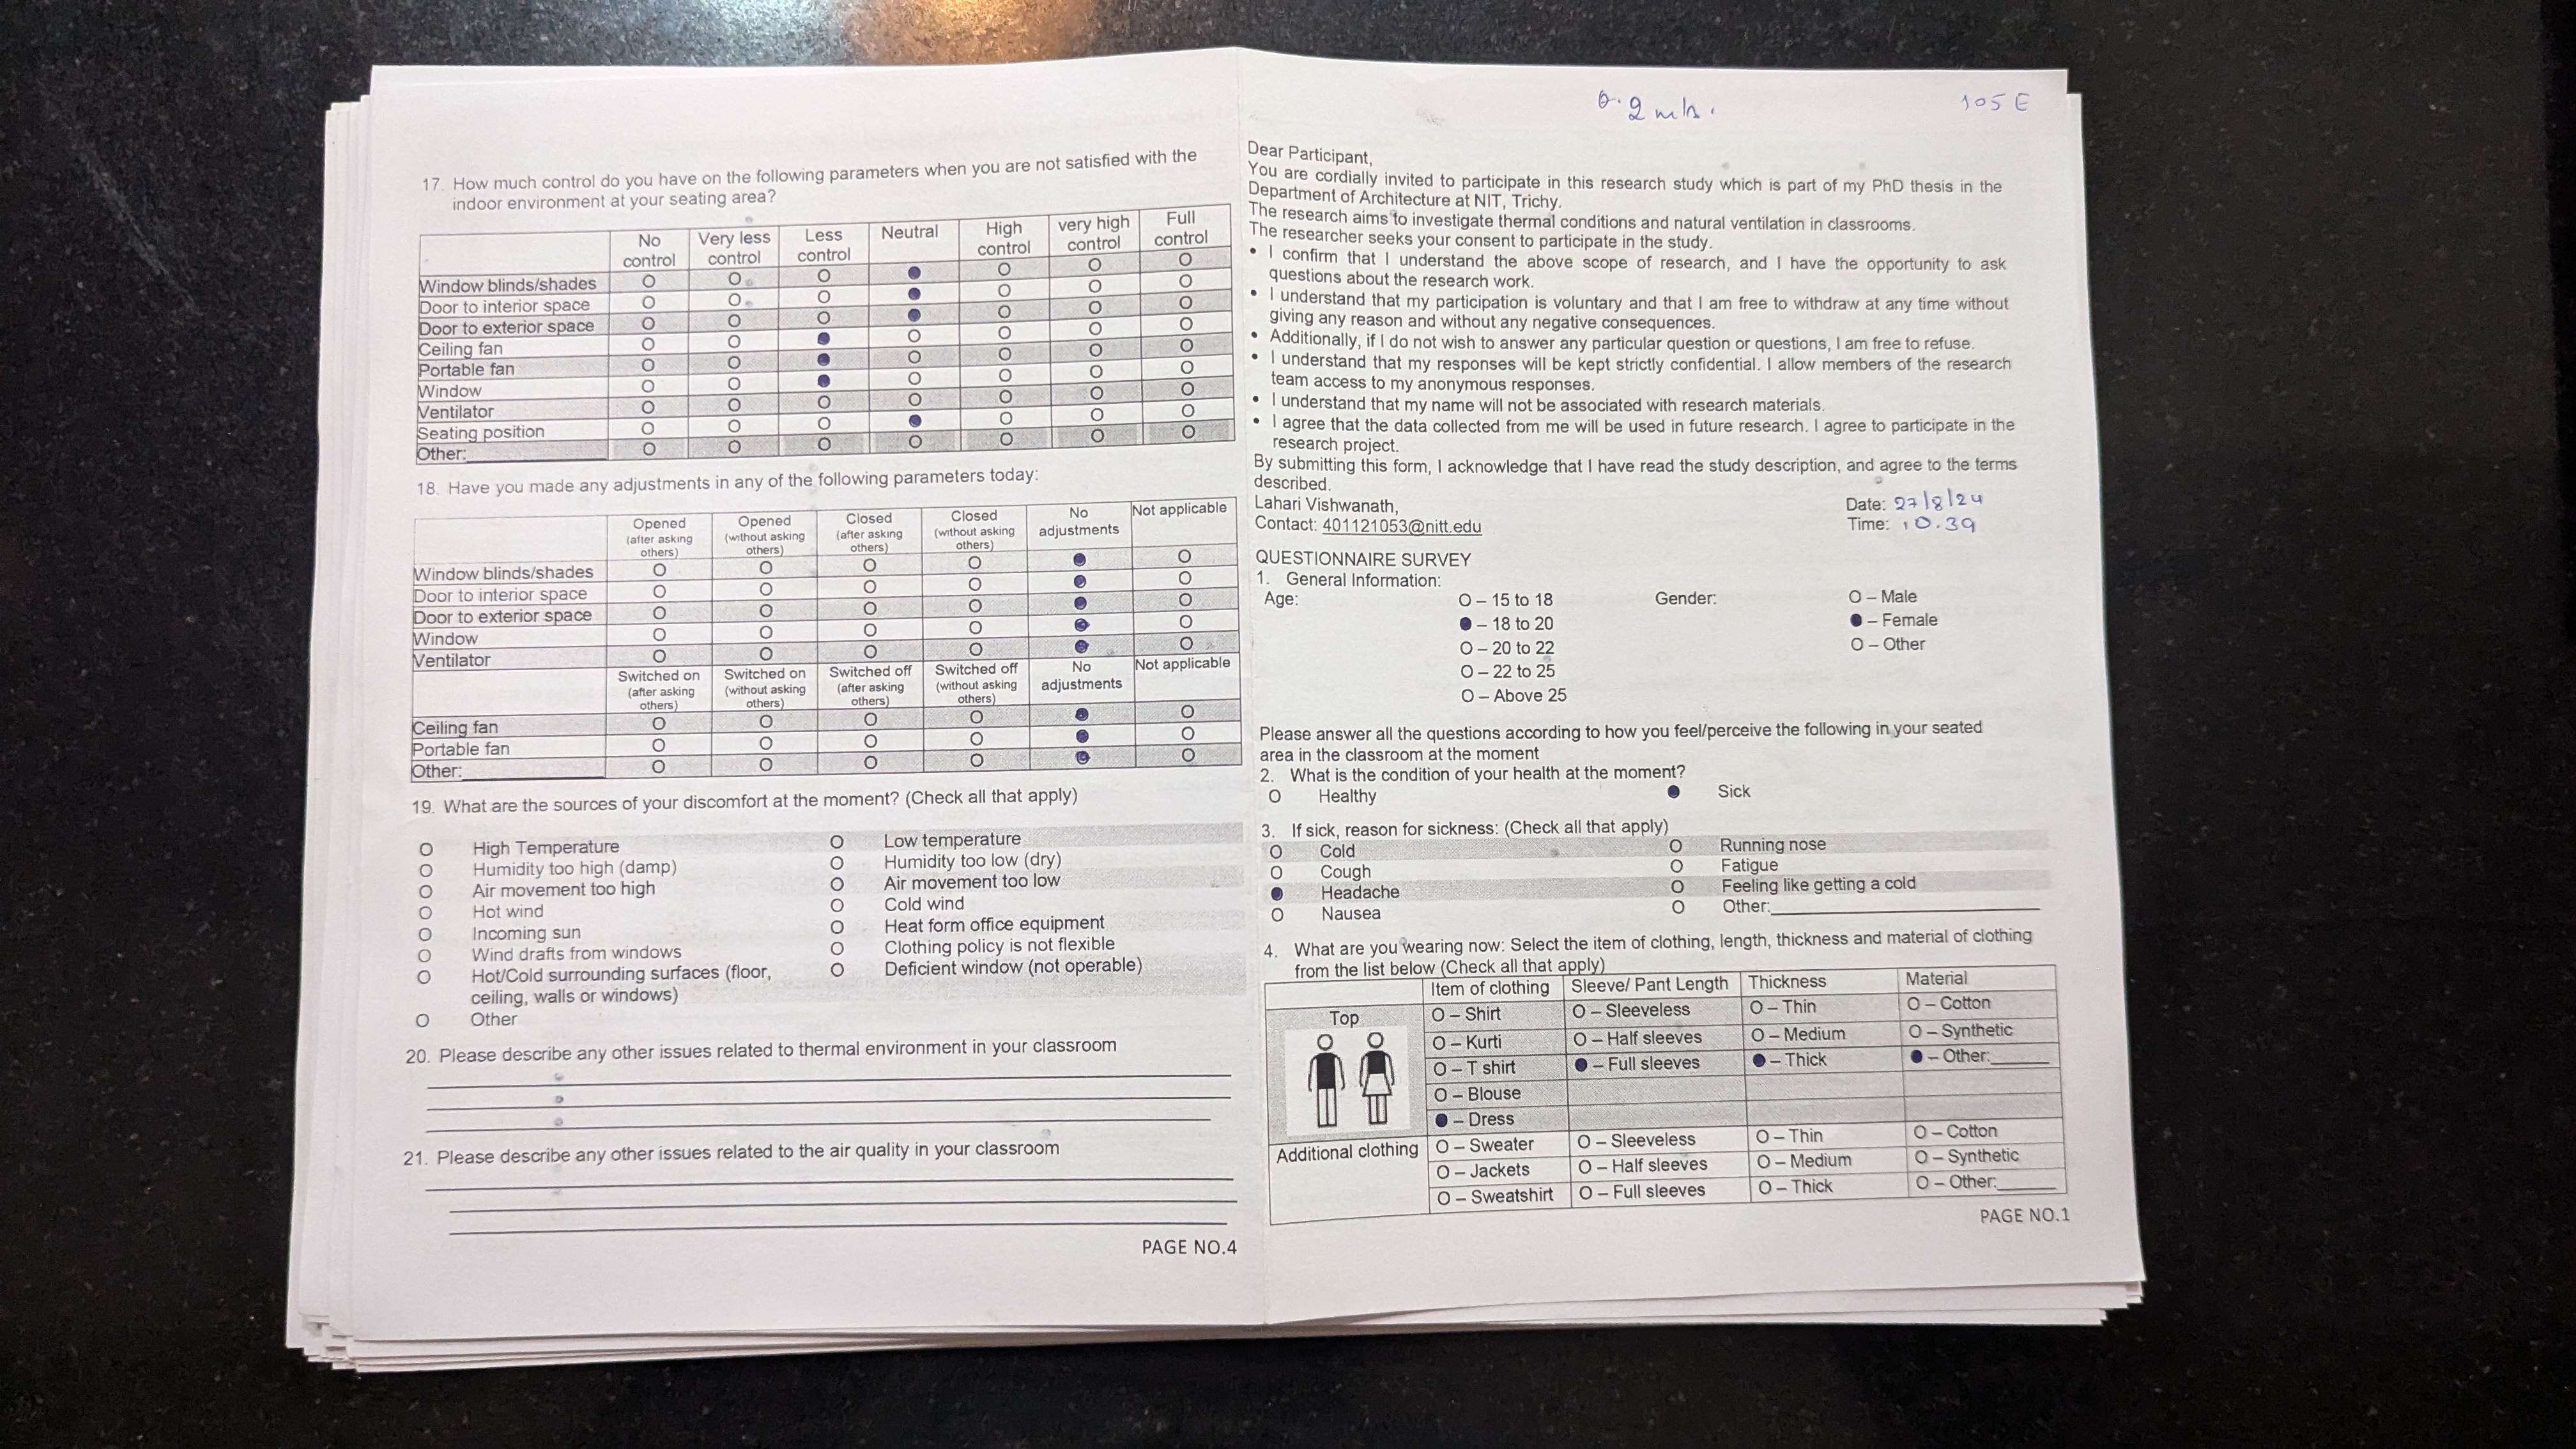 17. How much control do you have on the following parameters when you are not satisfied with the
indoor environment at your seating area?
No control Very less control Less control Neutral High control very high control Full control
Window blinds/shades O O O ● O O O
Door to interior space O O O ● O O O
Door to exterior space O O O ● O O O
Ceiling fan O O ● O O O O
Portable fan O O ● O O O O
Window O O ● O O O O
Ventilator O O O O O O O
Seating position O O O ● O O O
Other:__________ O O O O O O O
18. Have you made any adjustments in any of the following parameters today:
Opened (after asking others) Opened (without asking others) Closed (after asking others) Closed (without asking others) No adjustments Not applicable
Window blinds/shades O O O O ● O
Door to interior space O O O O ● O
Door to exterior space O O O O ● O
Window O O O O ● O
Ventilator O O O O ● O
Switched on (after asking others) Switched on (without asking others) Switched off (after asking others) Switched off (without asking others) No adjustments Not applicable
Ceiling fan O O O O ● O
Portable fan O O O O ● O
Other:__________ O O O O ● O
19. What are the sources of your discomfort at the moment? (Check all that apply)
O High Temperature O Low temperature
O Humidity too high (damp) O Humidity too low (dry)
O Air movement too high O Air movement too low
O Hot wind O Cold wind
O Incoming sun O Heat form office equipment
O Wind drafts from windows O Clothing policy is not flexible
O Hot/Cold surrounding surfaces (floor, O Deficient window (not operable)
ceiling, walls or windows)
O Other
20. Please describe any other issues related to thermal environment in your classroom
21. Please describe any other issues related to the air quality in your classroom
PAGE NO.4
0.2 m/s. 105 E
Dear Participant,
You are cordially invited to participate in this research study which is part of my PhD thesis in the
Department of Architecture at NIT, Trichy.
The research aims to investigate thermal conditions and natural ventilation in classrooms.
The researcher seeks your consent to participate in the study.
• I confirm that I understand the above scope of research, and I have the opportunity to ask
questions about the research work.
• I understand that my participation is voluntary and that I am free to withdraw at any time without
giving any reason and without any negative consequences.
• Additionally, if I do not wish to answer any particular question or questions, I am free to refuse.
• I understand that my responses will be kept strictly confidential. I allow members of the research
team access to my anonymous responses.
• I understand that my name will not be associated with research materials.
• I agree that the data collected from me will be used in future research. I agree to participate in the
research project.
By submitting this form, I acknowledge that I have read the study description, and agree to the terms
described.
Lahari Vishwanath, Date: 27/8/24
Contact: 401121053@nitt.edu Time: 10.39
QUESTIONNAIRE SURVEY
1. General Information:
Age: O – 15 to 18 Gender: O – Male
● – 18 to 20 ● – Female
O – 20 to 22 O – Other
O – 22 to 25
O – Above 25
Please answer all the questions according to how you feel/perceive the following in your seated
area in the classroom at the moment
2. What is the condition of your health at the moment?
O Healthy ● Sick
3. If sick, reason for sickness: (Check all that apply)
O Cold O Running nose
O Cough O Fatigue
● Headache O Feeling like getting a cold
O Nausea O Other:__________
4. What are you wearing now: Select the item of clothing, length, thickness and material of clothing
from the list below (Check all that apply)
Item of clothing Sleeve/ Pant Length Thickness Material
Top O – Shirt O – Sleeveless O – Thin O – Cotton
O – Kurti O – Half sleeves O – Medium O – Synthetic
O – T shirt ● – Full sleeves ● – Thick ● – Other:______
O – Blouse
● – Dress
Additional clothing O – Sweater O – Sleeveless O – Thin O – Cotton
O – Jackets O – Half sleeves O – Medium O – Synthetic
O – Sweatshirt O – Full sleeves O – Thick O – Other:______
PAGE NO.1